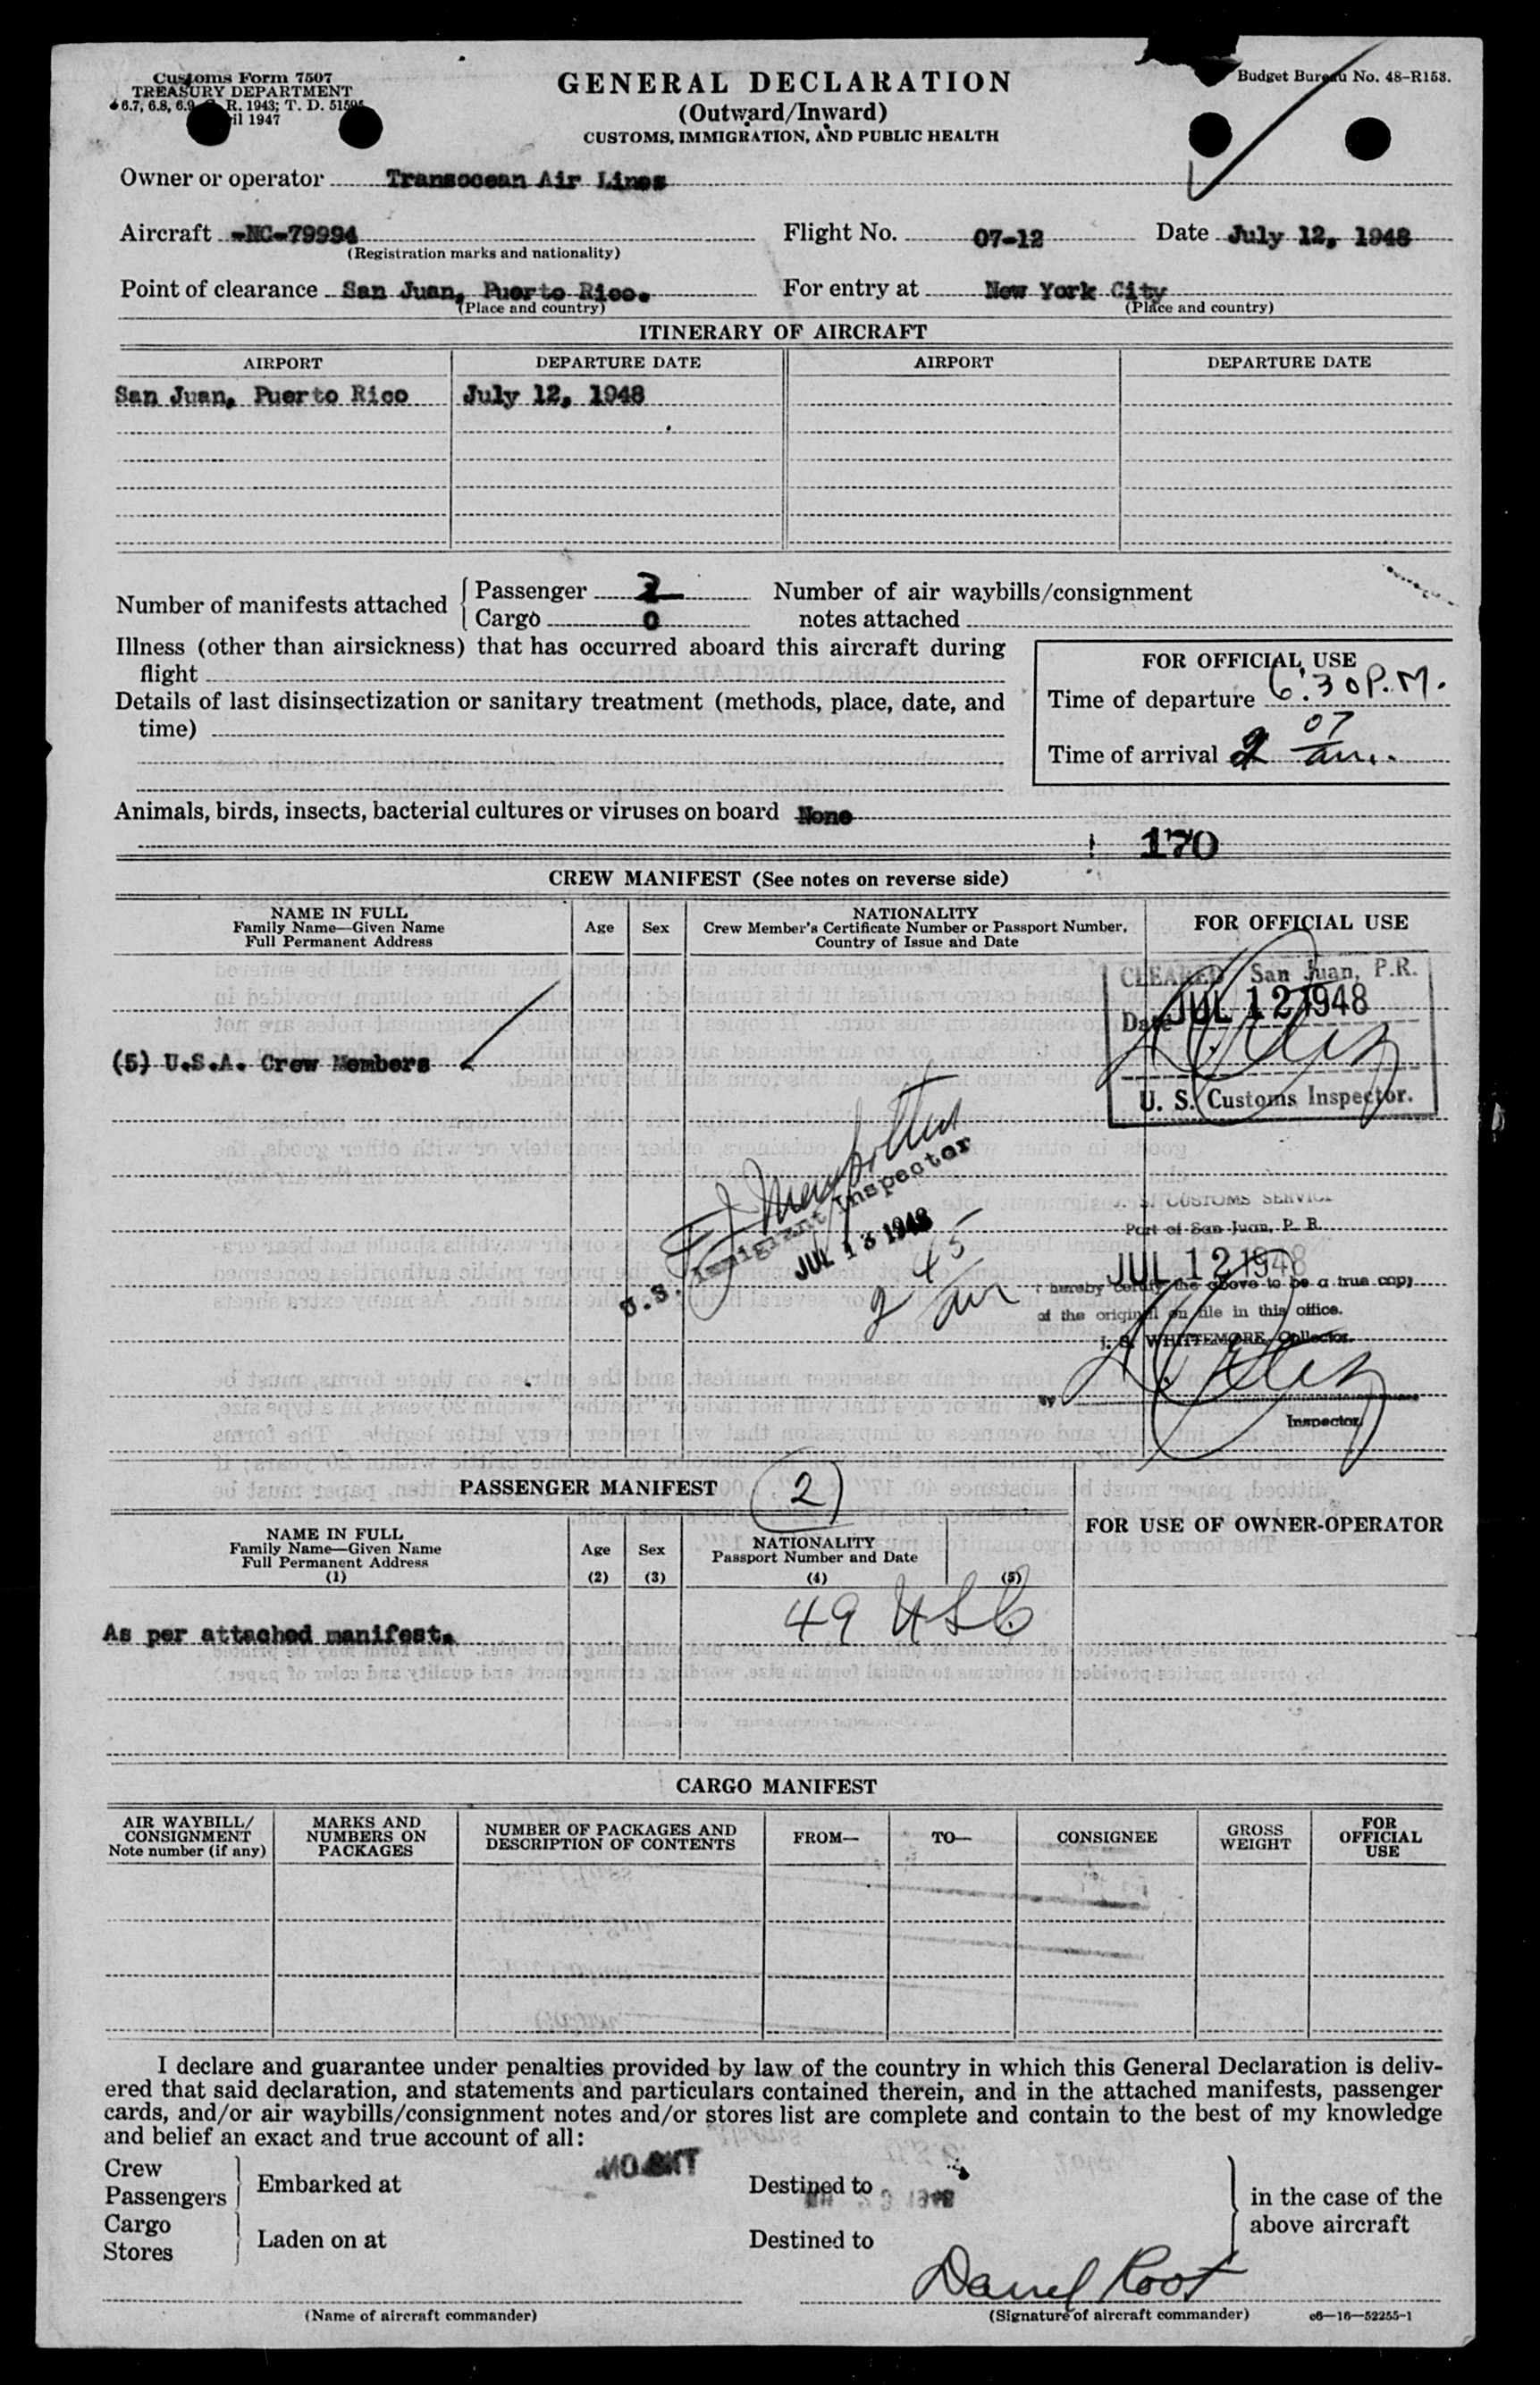 Customs Form 7507
TREASURY DEPARTMENT
6.7, 6.8, 6.9, R. 1943; T. D. 51595
1947
GENERAL DECLARATION
(Outward/Inward)
CUSTOMS, IMMIGRATION, AND PUBLIC HEALTH
Budget Bureau No. 48-R153.
Owner or operator Transocean Air Lines
Aircraft -NC-79994 Flight No. 07-12 Date July 12, 1948
(Registration marks and nationality)
Point of clearance San Juan, Puerto Rico. For entry at New York City
(Place and country) (Place and country)
ITINERARY OF AIRCRAFT
AIRPORT DEPARTURE DATE AIRPORT DEPARTURE DATE
San Juan, Puerto Rico July 12, 1948
Number of manifests attached Passenger 2 Number of air waybills/consignment
Cargo 0 notes attached
Illness (other than airsickness) that has occurred aboard this aircraft during
flight
Details of last disinsectization or sanitary treatment (methods, place, date, and
time)
FOR OFFICIAL USE
Time of departure 6:30 P.M.
Time of arrival 2 07 am.
Animals, birds, insects, bacterial cultures or viruses on board None
170
CREW MANIFEST (See notes on reverse side)
NAME IN FULL
Family Name—Given Name
Full Permanent Address
Age Sex
NATIONALITY
Crew Member's Certificate Number or Passport Number,
Country of Issue and Date
FOR OFFICIAL USE
CLEARED San Juan, P.R.
Date JUL 12 1948
U. S. Customs Inspector.
(5) U.S.A. Crew Members
U.S. Immigrant Inspector
JUL 13 1948
2 45
am
U. S. CUSTOMS SERVICE
Port of San Juan, P. R.
JUL 12 1948
I hereby certify the above to be a true copy
of the original on file in this office.
WHITTEMORE, Collector.
By
Inspector
PASSENGER MANIFEST 2
NAME IN FULL
Family Name—Given Name
Full Permanent Address
(1)
Age
(2)
Sex
(3)
NATIONALITY
Passport Number and Date
(4) (5)
FOR USE OF OWNER-OPERATOR
49 USC
As per attached manifest.
CARGO MANIFEST
AIR WAYBILL/
CONSIGNMENT
Note number (if any)
MARKS AND
NUMBERS ON
PACKAGES
NUMBER OF PACKAGES AND
DESCRIPTION OF CONTENTS
FROM— TO— CONSIGNEE
GROSS
WEIGHT
FOR
OFFICIAL
USE
I declare and guarantee under penalties provided by law of the country in which this General Declaration is deliv-
ered that said declaration, and statements and particulars contained therein, and in the attached manifests, passenger
cards, and/or air waybills/consignment notes and/or stores list are complete and contain to the best of my knowledge
and belief an exact and true account of all:
Crew
Passengers Embarked at Destined to in the case of the
Cargo above aircraft
Stores Laden on at Destined to
Darrel Root
(Name of aircraft commander) (Signature of aircraft commander) c6—16—52255-1